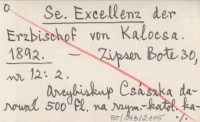 0
Se. Excellenz der
Erzbischof von Kalocsa.
1892. — Zipser Bote 30,
nr 12: 2.
Arcybiskup Császka da-
rował 500 fl. na rzym.-katol. ka-
./.